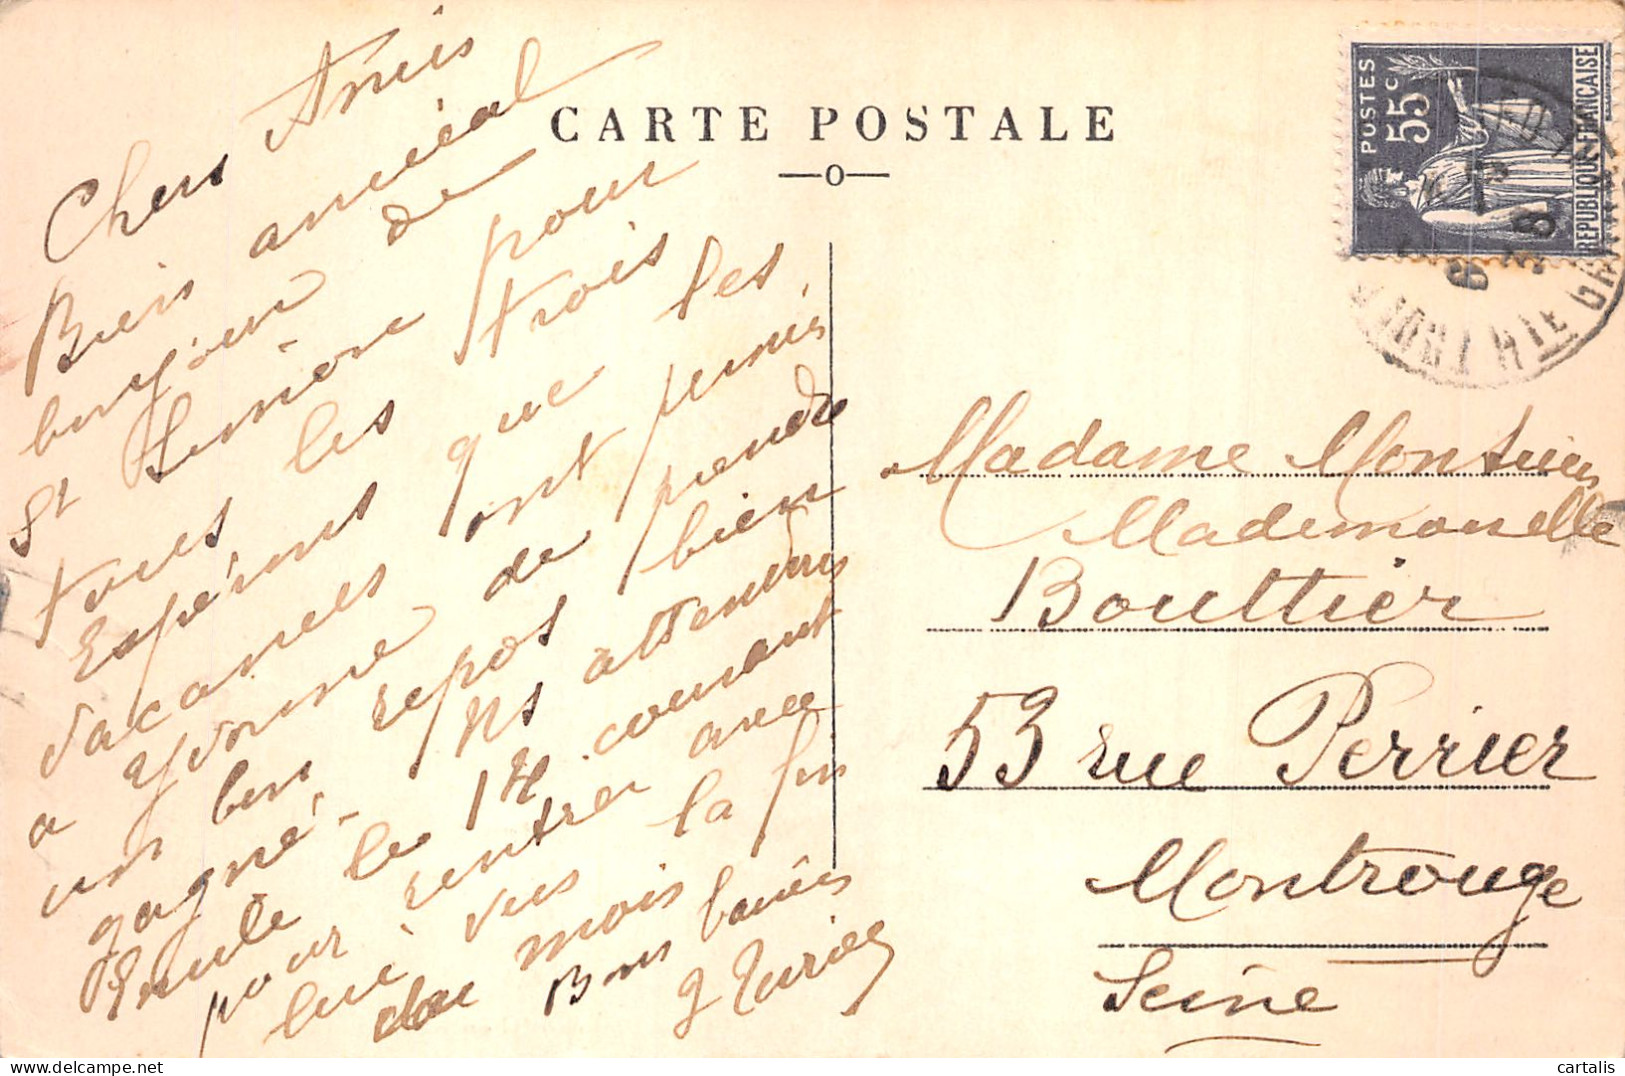 CARTE POSTALE
Chers Amis
Bien amical
bonjour de
St pour
tous les trois
Espérons que les
vacances ont permis
a Yvonne de prendre
un bon repos bien
gagné - Ns attendons
le 14 courant
pour rentrer avec
lui vers la fin
du mois
Bons baisers
POSTES
55c
REPUBLIQUE FRANÇAISE
Madame Monsieur
Mademoiselle
Bouttier
53 rue Perrier
Montrouge
Seine
cartalis
delcampe.net